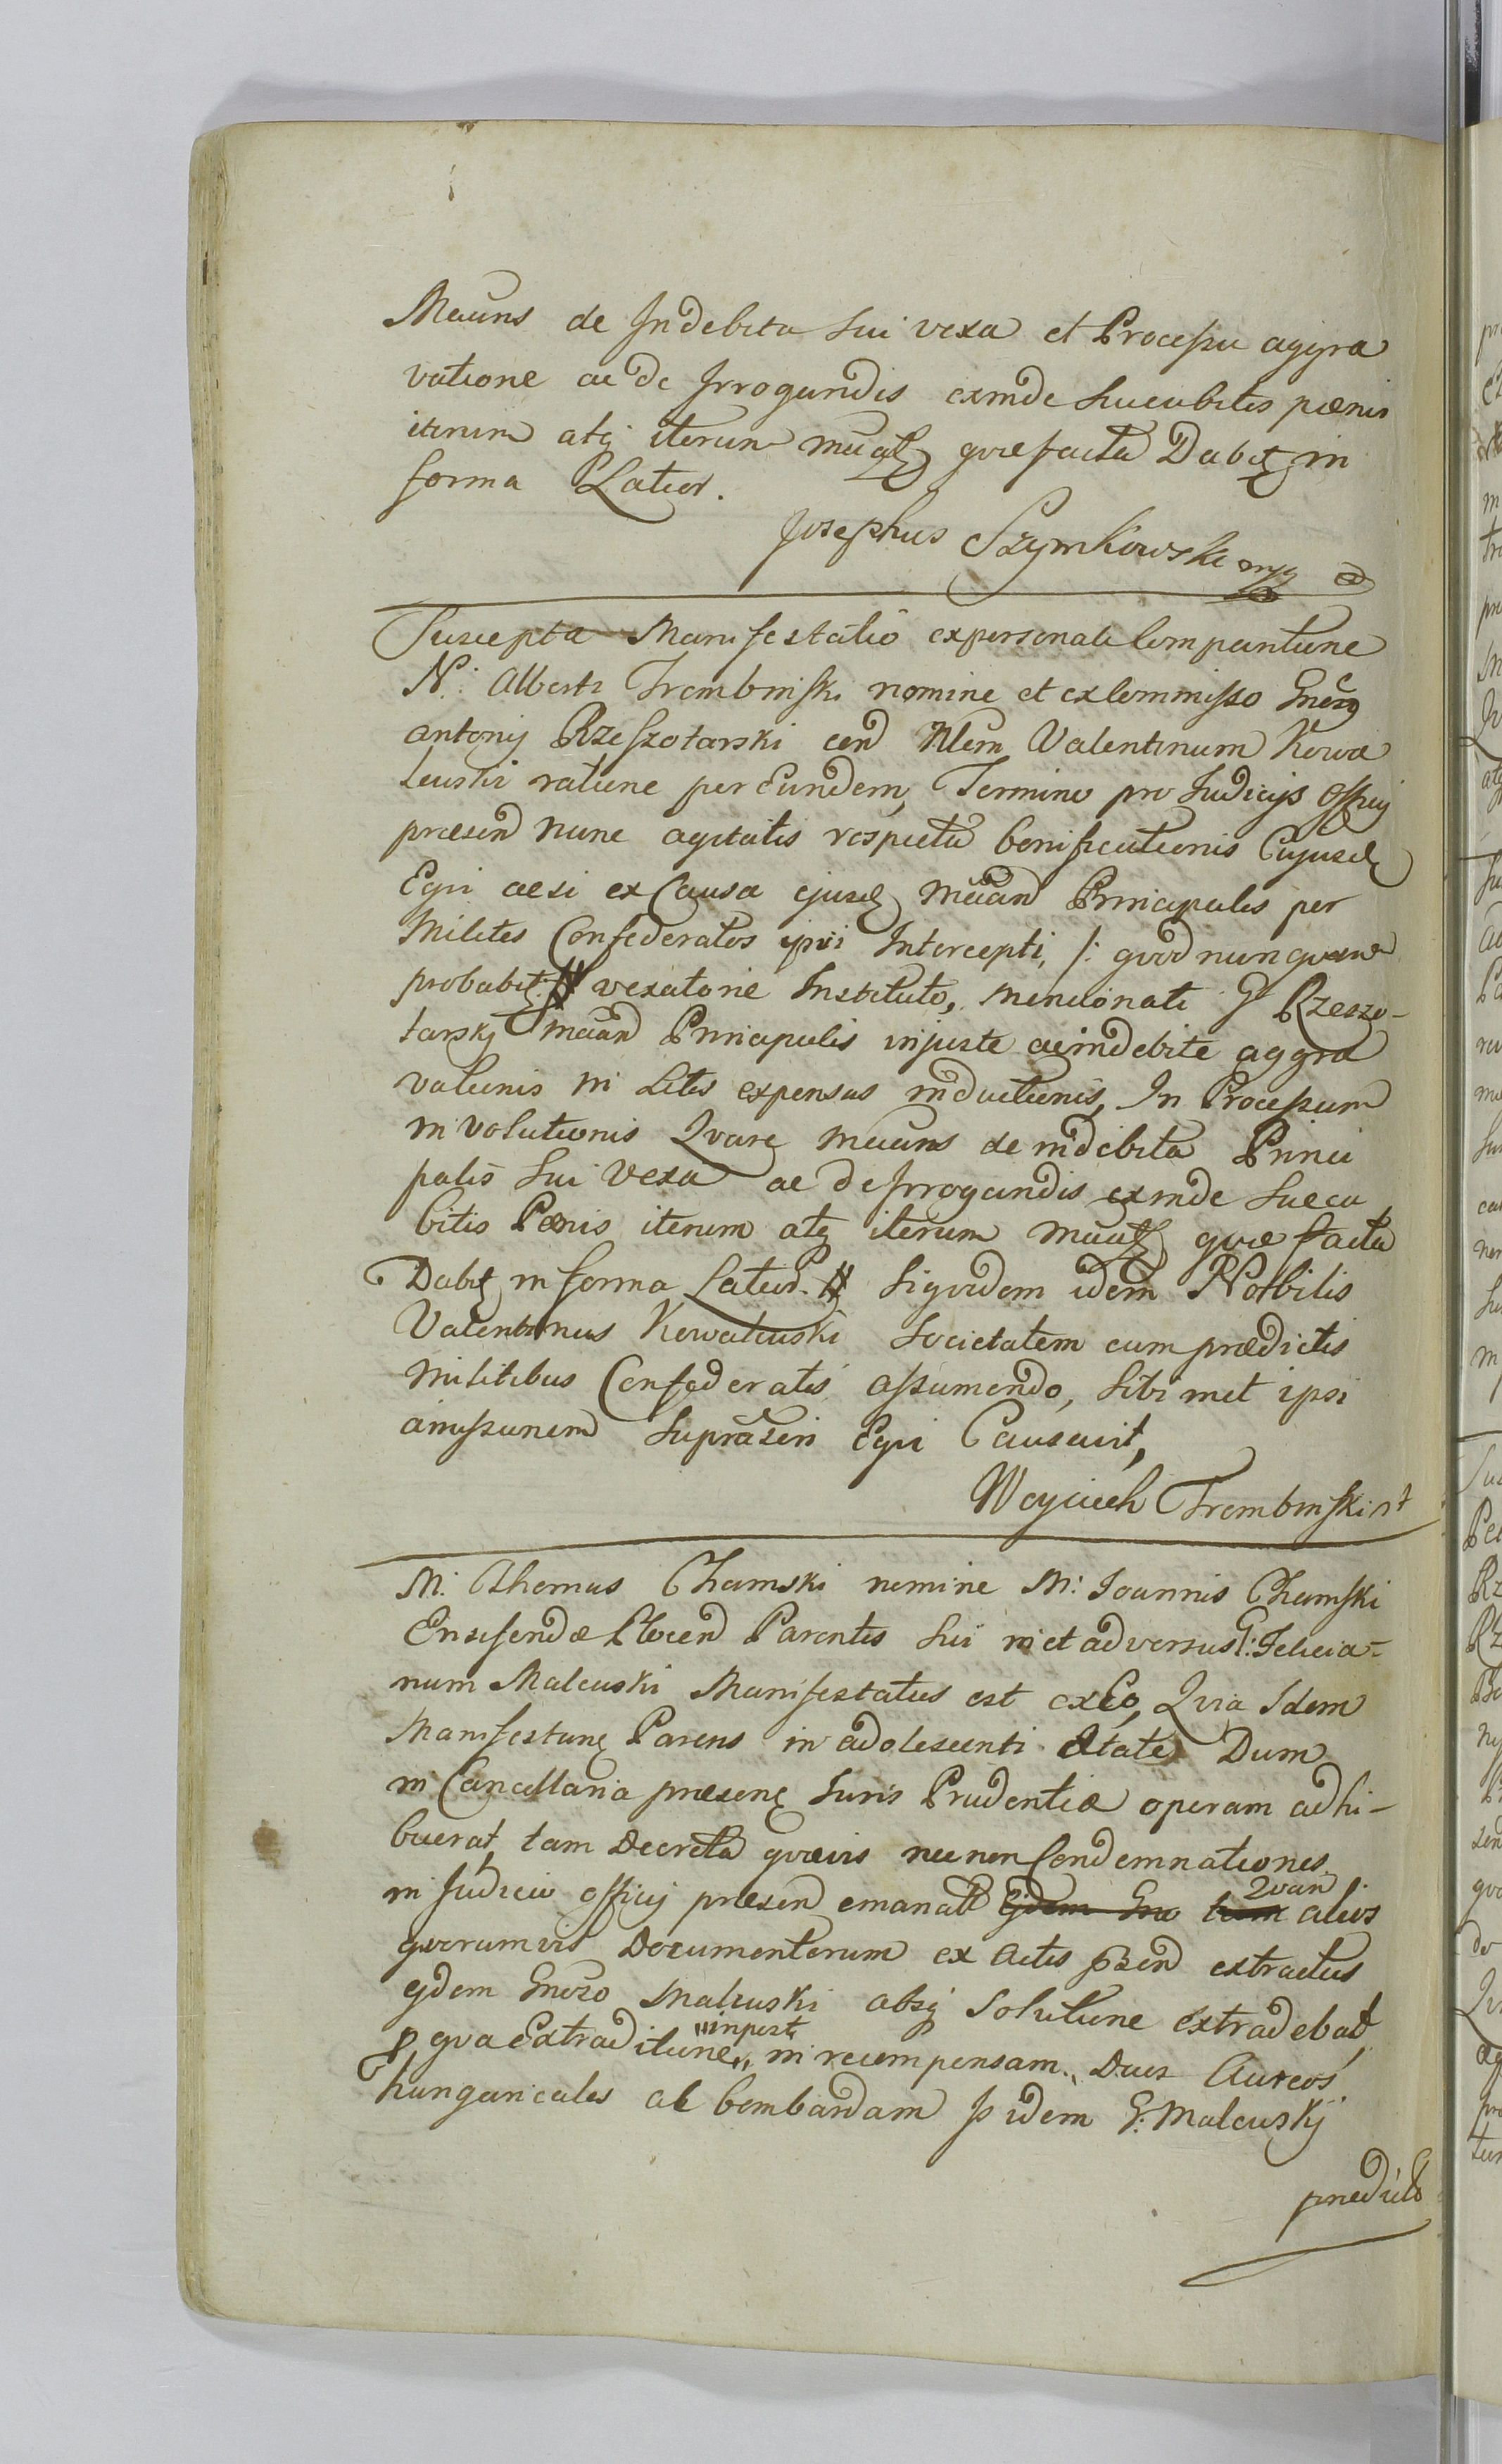 Meuns de Indebita Sui vexa et Processu aggra
vatione ac de Irrogandis exinde Succubitis pænis
iterum atq iterum quæ facta Dabit in
forma Latior.
Josephus Szymkowski mp
Suscepta Manifestatio ex personali Comparitione
N: Alberti Trembinski nomine et ex Commisso Gnesi
Antonij Rzeszotarski con Nlem Valentinum Kowa
lewski ratione per Eundem, Termino pro Judicijs Offcij
præsen nunc agitatis respectu bonificationis Cujusd
Equi acsi ex Causa ejusd Principalis per
Milites Confederatos ipsi Intercepti, /: quod nunquam
probabit :/ vexatorie Instituto, Mencionati G Rzeszo-
tarskj Principalis injuste ac indebite aggra
vationis in Litis expensas inductionis, In Processum
involutionis Qvare de indebita Princi
palis Sui Vexa ac de Irrogandis exinde Succu
bitis Pænis iterum atq iterum quæ facta
Dabit in forma Latior. # Siquidem idem Nobilis
Valentinus Kowalewski Societatem cum prædictis
Militibus Confederatis assumendo, Sibimet ipsi
amissionem Supraseri Equi Causavit,
Woyciech Trembinski
M: Thomas Chamski nomine M: Joannis Chamski
Ensiferidæ Plocen Parentis Sui in et adversus G: Felicia-
num Malewski Manifestatus est ex Eo, Qvia Idem
Manifestant Parens in adolescenti Ætate Dum
in Cancellaria præsent Juris Prudentiæ operam adhi-
buerat, tam Decreta quævis nec non Condemnationes
in Judicio officij præsen emanat Ejdem Gno tam Qvam alios
quorumvis Documentorum ex Actis psen extractus
ejdem Gneroso Malewski absq Solutione extradebat,
P qva Extraditione,, inpost in recompensam,, Duos Aureos
hungaricales ac bombardam P idem G: Malewskj
prædicto